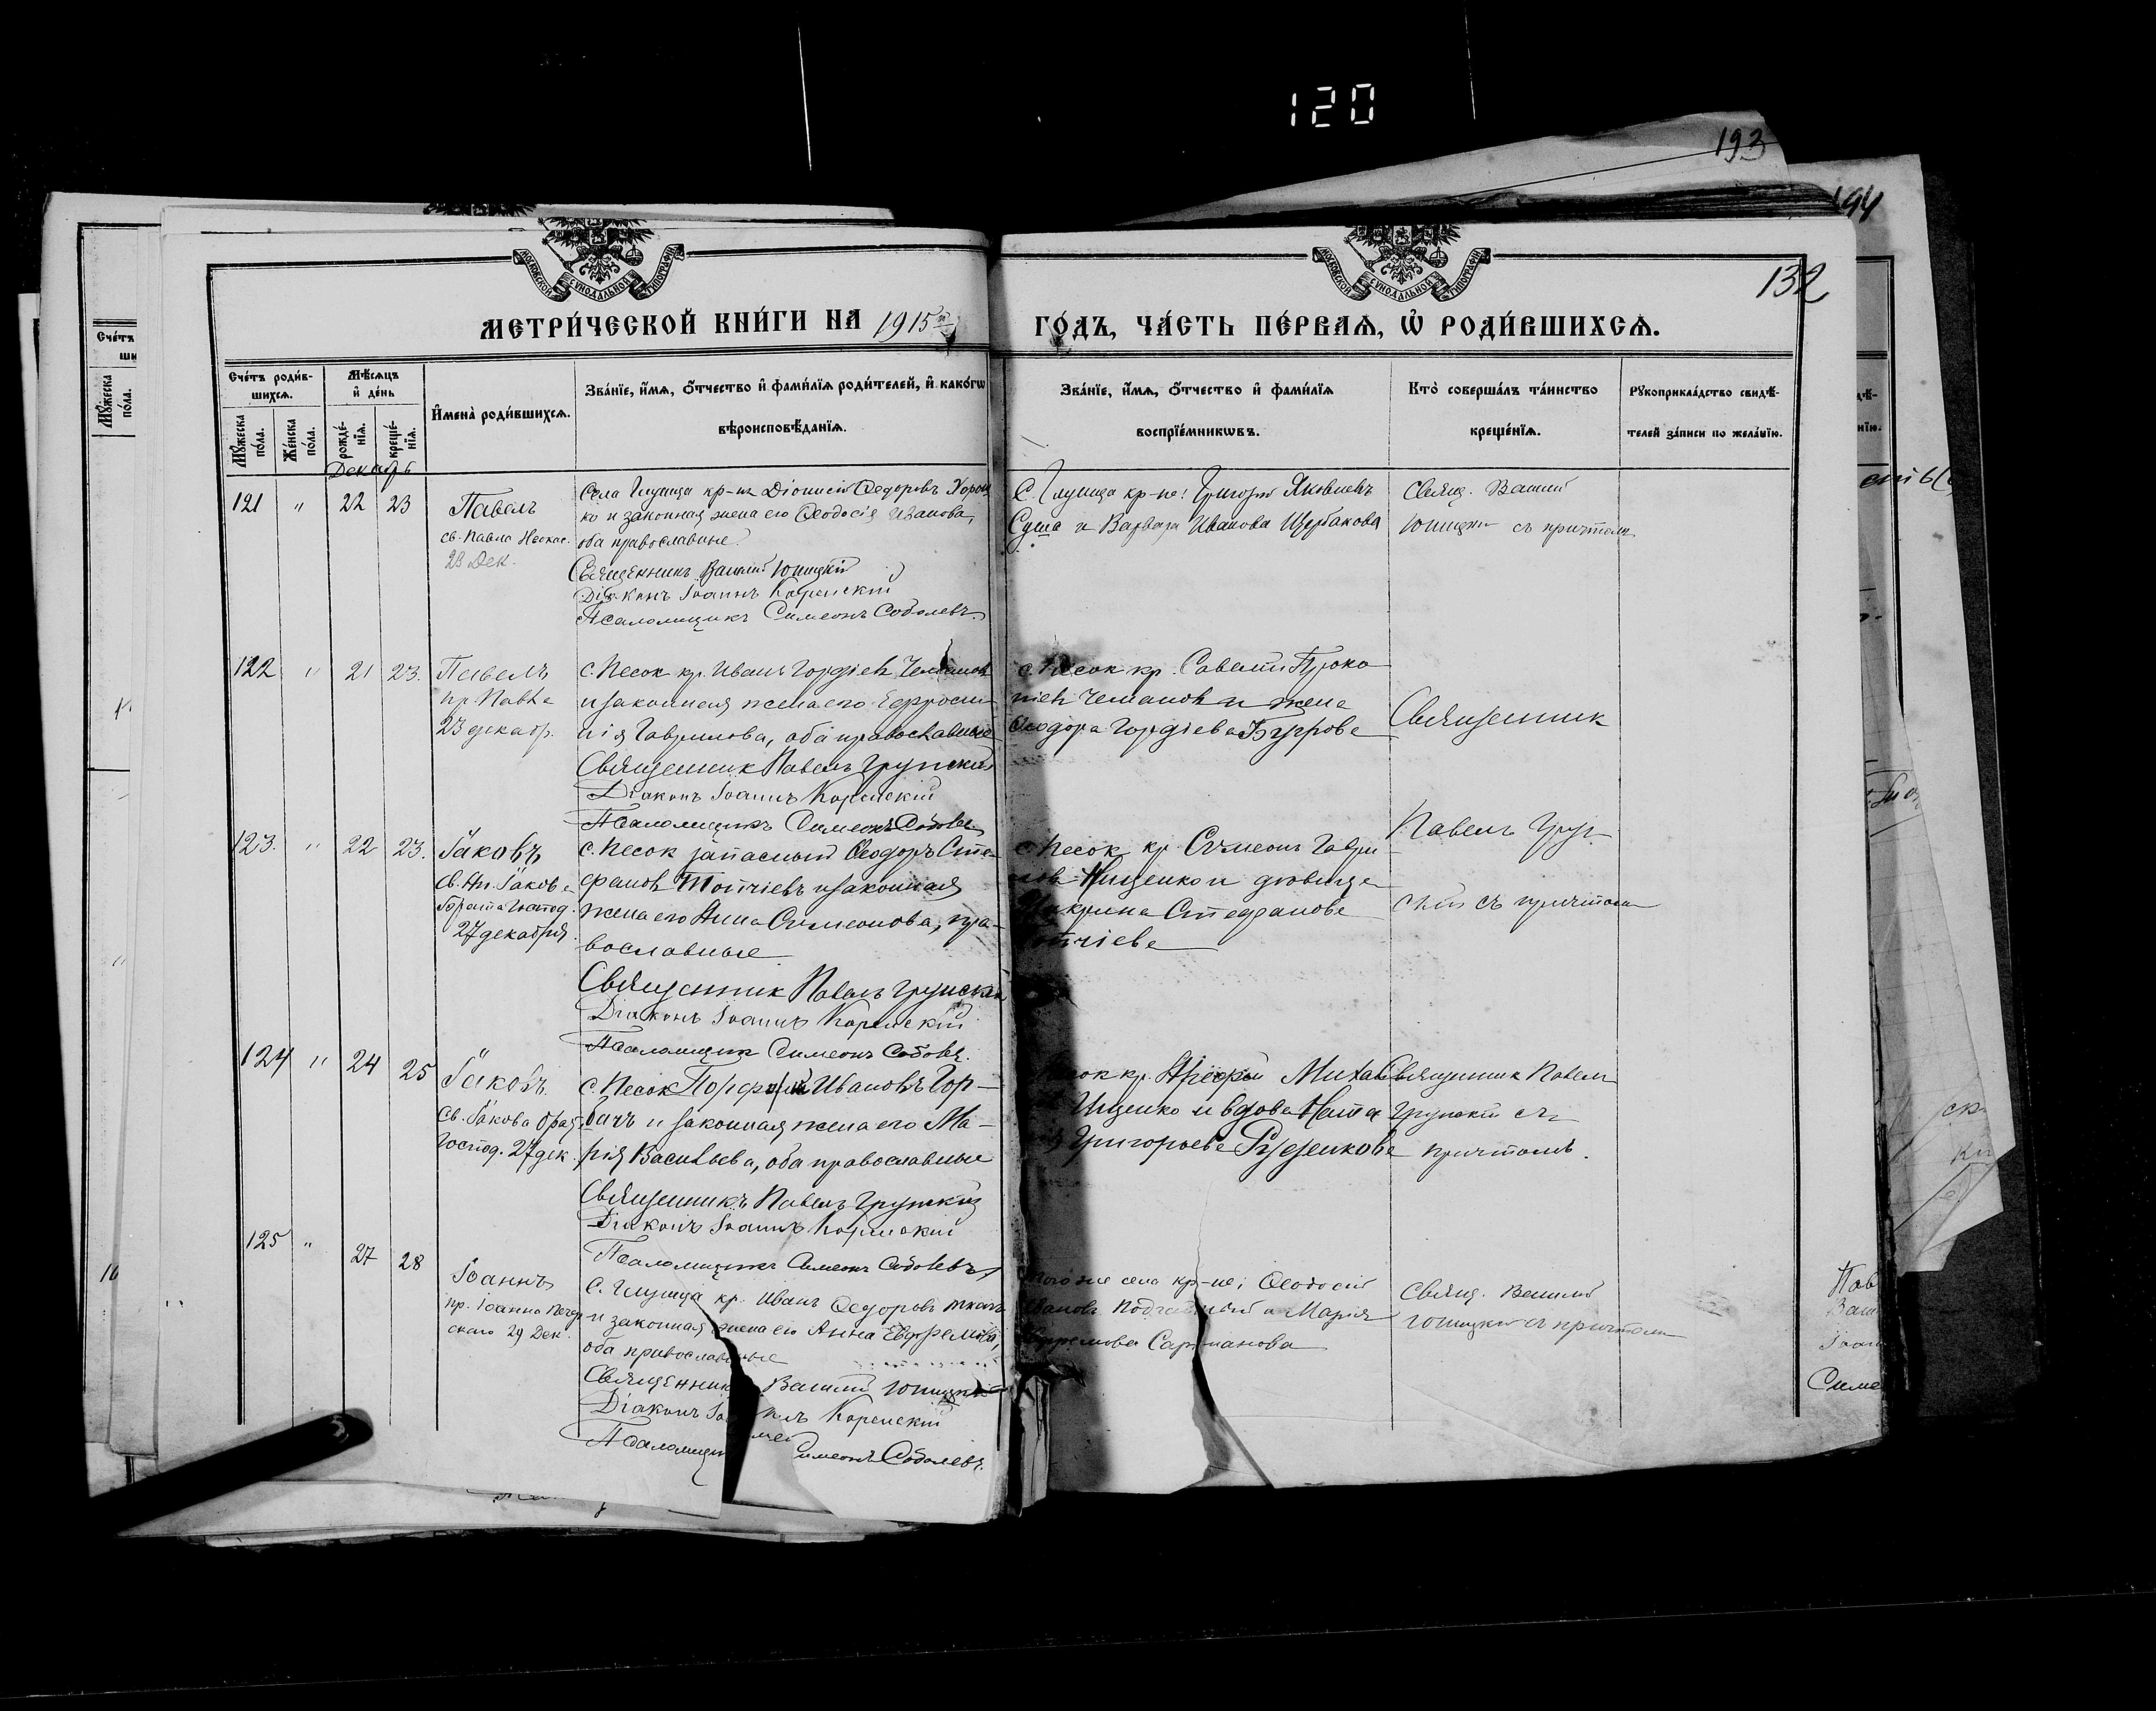 120
193
194
132
МОСКОВСКОЙ СѴНОДАЛЬНОЙ ТИПОГРАФІИ
МОСКОВСКОЙ СѴНОДАЛЬНОЙ ТИПОГРАФІИ
МЕТРИ́ЧЕСКОЙ КНИ́ГИ НА 1915й
ГО́ДЪ, ЧА́СТЬ ПЕ́РВАЯ, Ѡ҆ РОДИ́ВШИХСЯ.
Сче́тъ роди́в-
шихся.
Мꙋ́жеска по́ла.
Же́нска по́ла.
Мѣ́сяцъ и҆ де́нь
рожде́-
нїя.
креще́-
нїя.
И҆мена̀ роди́вшихся.
Зва́нїе, и҆́мя, о҆́тчество и҆ фами́лїя роди́телей, и҆ како́гѡ
вѣроисповѣ́данїя.
Зва́нїе, и҆́мя, о҆́тчество и҆ фами́лїя
воспрїе́мникѡвъ.
Кто̀ соверша́лъ та́инство
креще́нїя.
Рꙋкоприкла́дство свидѣ́-
телей за́писи по жела́нїю.
Декабрь
121 " 22 23
Павелъ
св. Павла Неокес.
23 Дек.
Села Глушца кр-нъ Діонисій Ѳедоровъ Хорош
ко и законная жена его Ѳеодосія Иванова,
оба православные.
Священникъ Василій Юницкій
Діаконъ Іоаннъ Коренскій
Псаломщикъ Симеонъ Соболевъ.
С. Глушца кр-не: Григорій Яковлевъ
Суша и Варвара Иванова Щербакова
Свящ. Василій
Юницкій съ причтомъ
122 " 21 23.
Павелъ
пр. Павла
23 декабр.
с. Песок кр. Иванъ Гордіев
и законная жена его Ефроси-
нія Гаврилова, оба православные
Священник Павелъ
Діаконъ Іоаннъ Коренскій
Псаломщикъ Симеонъ Соболев
с. Песок кр. Саватій Проко
піев и жена
Ѳеодора Гордіева Бугрова
Священник
123. " 22 23.
Іаковъ
св. Ап. Іакова
брата Господ.
27 декабря.
с. Песок запасный Ѳеодоръ Сте-
фанов Топчіевъ и законная
жена его Анна Симеонова, пра-
вославные
Священник Павелъ
Діаконъ Іоаннъ Коренскій
Псаломщик Симеонъ Соболев.
с. Песок кр. Симеон Гаври
лов Нищенко и девица
Стефанова
Топчіева
Павелъ
съ причтом
124 " 24 25
Іаковъ.
Св. Іакова брат.
Господ. 27 дек.
с. Песок Порфирій Ивановъ Гор-
бачъ и законная жена его Ма-
рія Васильева, оба православные
Священникъ Павелъ
Діаконъ Іоаннъ Коренскій
Псаломщикъ Симеонъ Соболевъ
кр. Андрей Михай
Ищенко и вдова Ната
Григорьева Руденкова
Священник Павелъ
съ
причтомъ.
125 " 27 28
Іоаннъ
пр. Іоанна Печер
скаго 29 Дек.
С. Глушца кр. Иванъ Ѳедоровъ Ткачъ
и законная жена его Анна Евфремова,
оба православные
Священник Василій Юницкій
Діаконъ Коренскій
Псаломщик Симеонъ Соболевъ.
того же села кр-не: Ѳеодосій
Ивановъ и Марія
Ефремова Сарманова
Свящ. Василій
Юницкій съ причтомъ